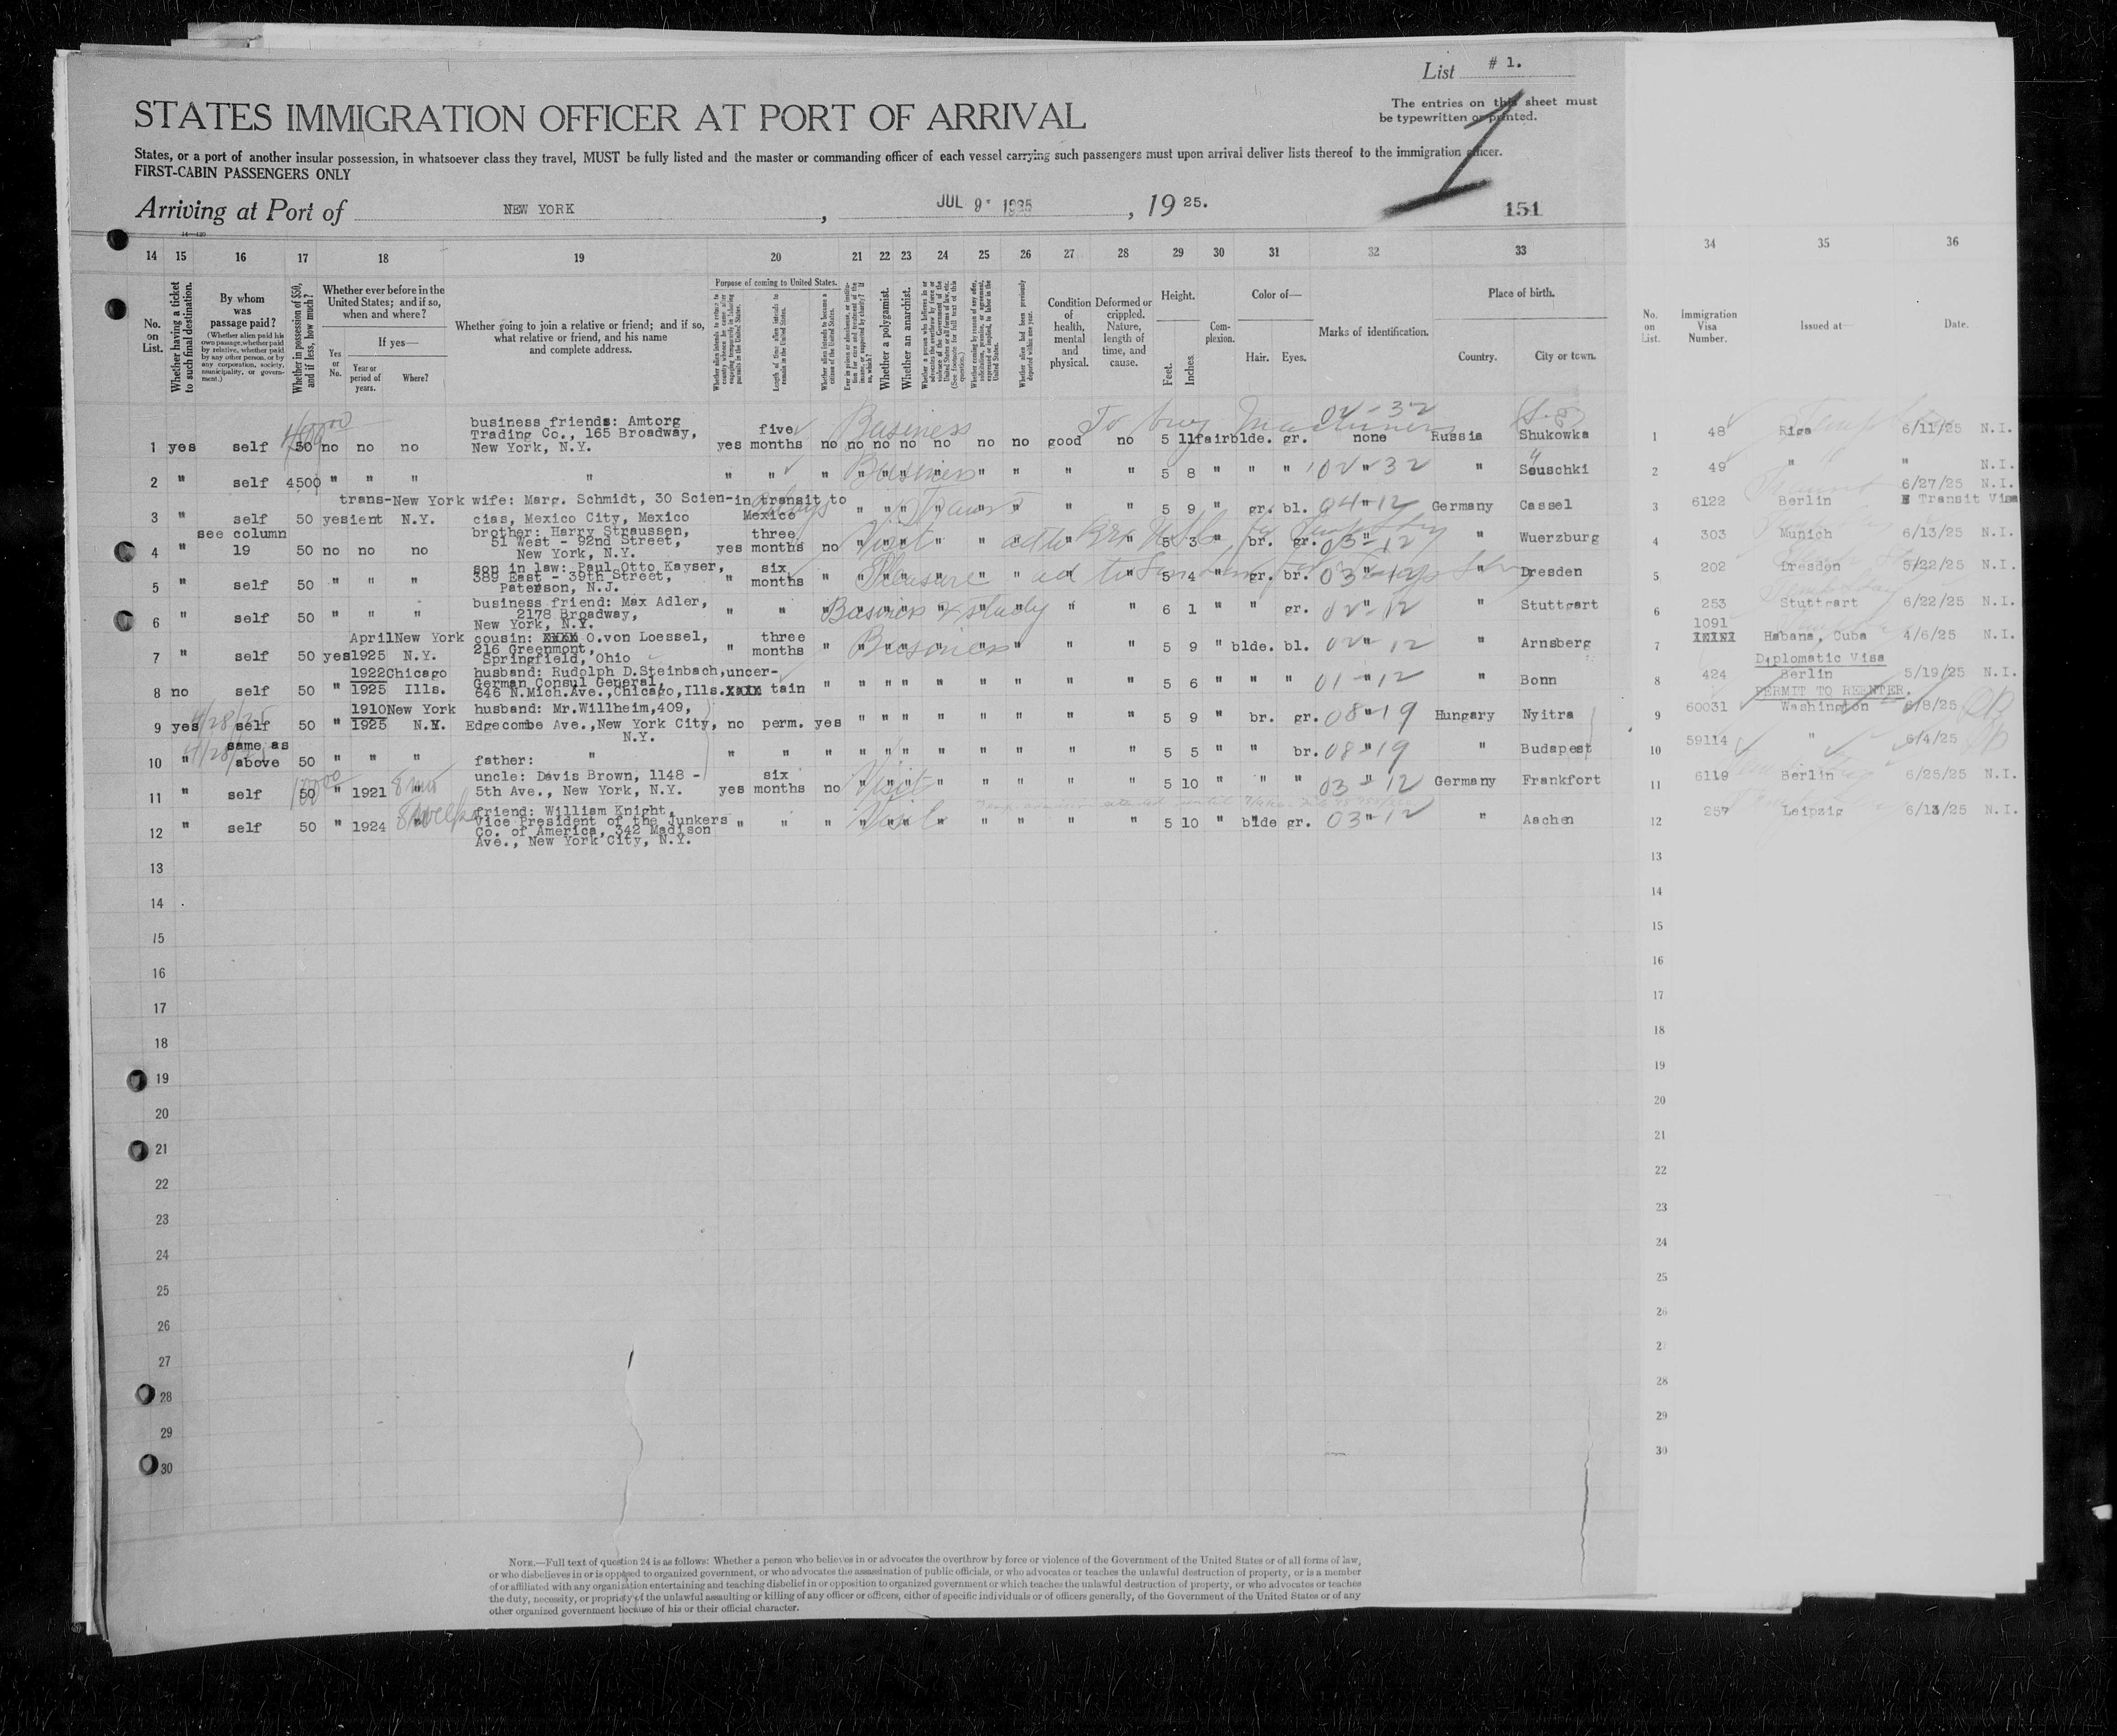 List # 1.
The entries on this sheet must
be typewritten or printed.
1
STATES IMMIGRATION OFFICER AT PORT OF ARRIVAL
States, or a port of another insular possession, in whatsoever class they travel, MUST be fully listed and the master or commanding officer of each vessel carrying such passengers must upon arrival deliver lists thereof to the immigration officer.
FIRST-CABIN PASSENGERS ONLY
Arriving at Port of NEW YORK, JUL 9 1925, 19 25.
151
14 15 16 17 18 19 20 21 22 23 24 25 26 27 28 29 30 31 32 33 34 35 36
No. on List.
Whether having a ticket to such final destination.
By whom was passage paid?
(Whether alien paid his own passage, whether paid by relative, whether paid by any other person, or by any corporation, society, municipality, or government.)
Whether in possession of $50, and if less, how much?
Whether ever before in the United States; and if so, when and where?
Yes or No.
If yes—
Year or period of years.
Where?
Whether going to join a relative or friend; and if so, what relative or friend, and his name and complete address.
Purpose of coming to United States.
Length of time alien intends to remain in the United States.
Whether alien intends to become a citizen of the United States.
Whether a polygamist.
Whether an anarchist.
Condition of health, mental and physical.
Deformed or crippled. Nature, length of time, and cause.
Height.
Feet. Inches.
Complexion.
Color of—
Hair. Eyes.
Marks of identification.
Place of birth.
Country. City or town.
No. on List.
Immigration Visa Number.
Issued at—
Date.
business friends: Amtorg
Trading Co., 165 Broadway,
1 yes self 50 no no no New York, N.Y. yes five months no no no no no no no good no 5 11 fair blde. gr. none Russia Shukowka 1 48 Riga 6/11/25 N.I.
Business To buy Machinery 02-32
2 " self 4500 " " " " " " " " " " " " " " " " 5 8 " " " " " Souschki 2 49 " " N.I.
Business 02-32
3 " self 50 yes transient New York N.Y. wife: Marg. Schmidt, 30 Scien-
cias, Mexico City, Mexico in transit to Mexico " " " " " " " " 5 9 " gr. bl. " Germany Cassel 3 6122 Berlin 6/27/25 N.I. Transit Visa
04-12
brother: Harry Straussen,
51 West - 92nd Street,
4 " see column 19 50 no no no New York, N.Y. yes three months no " " " " " " " " 5 3 " br. gr. " " Wuerzburg 4 303 Munich 6/13/25 N.I.
Visit 03-12
son in law: Paul Otto Kayser,
389 East - 39th Street,
5 " self 50 " " " Paterson, N.J. " six months " " " " " " " " " 5 4 " gr. br. " " Dresden 5 202 Dresden 5/22/25 N.I.
Pleasure 03-12
business friend: Max Adler,
2178 Broadway,
6 " self 50 " " " New York, N.Y. " " " " " " " " " " " 6 1 " " gr. " Stuttgart 6 253 Stuttgart 6/22/25 N.I.
Business & study 02-12
cousin: O.von Loessel,
216 Greenmont,
7 " self 50 yes April 1925 New York N.Y. Springfield, Ohio " three months " " " " " " " " " 5 9 " blde. bl. " " Arnsberg 7 1091 Habana, Cuba 4/6/25 N.I.
Business 02-12
husband: Rudolph D.Steinbach,
German Consul General,
8 no self 50 " 1922 1925 Chicago Ills. 646 N.Mich.Ave.,Chicago,Ills. uncertain " " " " " " " " " 5 6 " " " " " Bonn 8 424 Diplomatic Visa Berlin 5/19/25 N.I.
01-12
husband: Mr.Willheim,409,
9 yes self 50 " 1910 1925 New York N.Y. Edgecombe Ave.,New York City, N.Y. no perm. yes " " " " " " " " 5 9 " br. gr. " Hungary Nyitra 9 60031 PERMIT TO REENTER. Washington 6/8/25
4/28/25 08-19
10 " same as above 50 " " " father: " " " " " " " " " " " " 5 5 " " br. " " Budapest 10 59114 " 6/4/25
4/28/25 08-19
11 " self 50 " 1921 " uncle: Davis Brown, 1148 -
5th Ave., New York, N.Y. yes six months no " " " " " " " " 5 10 " " " " Germany Frankfort 11 6119 Berlin 6/25/25 N.I.
Visit 03-12
friend: William Knight,
Vice President of the Junkers
12 " self 50 " 1924 " Co. of America, 342 Madison
Ave., New York City, N.Y. " " " " " " " " " " " 5 10 " blde gr. " " Aachen 12 257 Leipzig 6/13/25 N.I.
Visit 03-12
13 13
14 14
15 15
16 16
17 17
18 18
19 19
20 20
21 21
22 22
23 23
24 24
25 25
26 26
27 27
28 28
29 29
30 30
NOTE.—Full text of question 24 is as follows: Whether a person who believes in or advocates the overthrow by force or violence of the Government of the United States or of all forms of law,
or who disbelieves in or is opposed to organized government, or who advocates the assassination of public officials, or who advocates or teaches the unlawful destruction of property, or is a member
of or affiliated with any organization entertaining and teaching disbelief in or opposition to organized government or which teaches the unlawful destruction of property, or who advocates or teaches
the duty, necessity, or propriety of the unlawful assaulting or killing of any officer or officers, either of specific individuals or of officers generally, of the Government of the United States or of any
other organized government because of his or their official character.